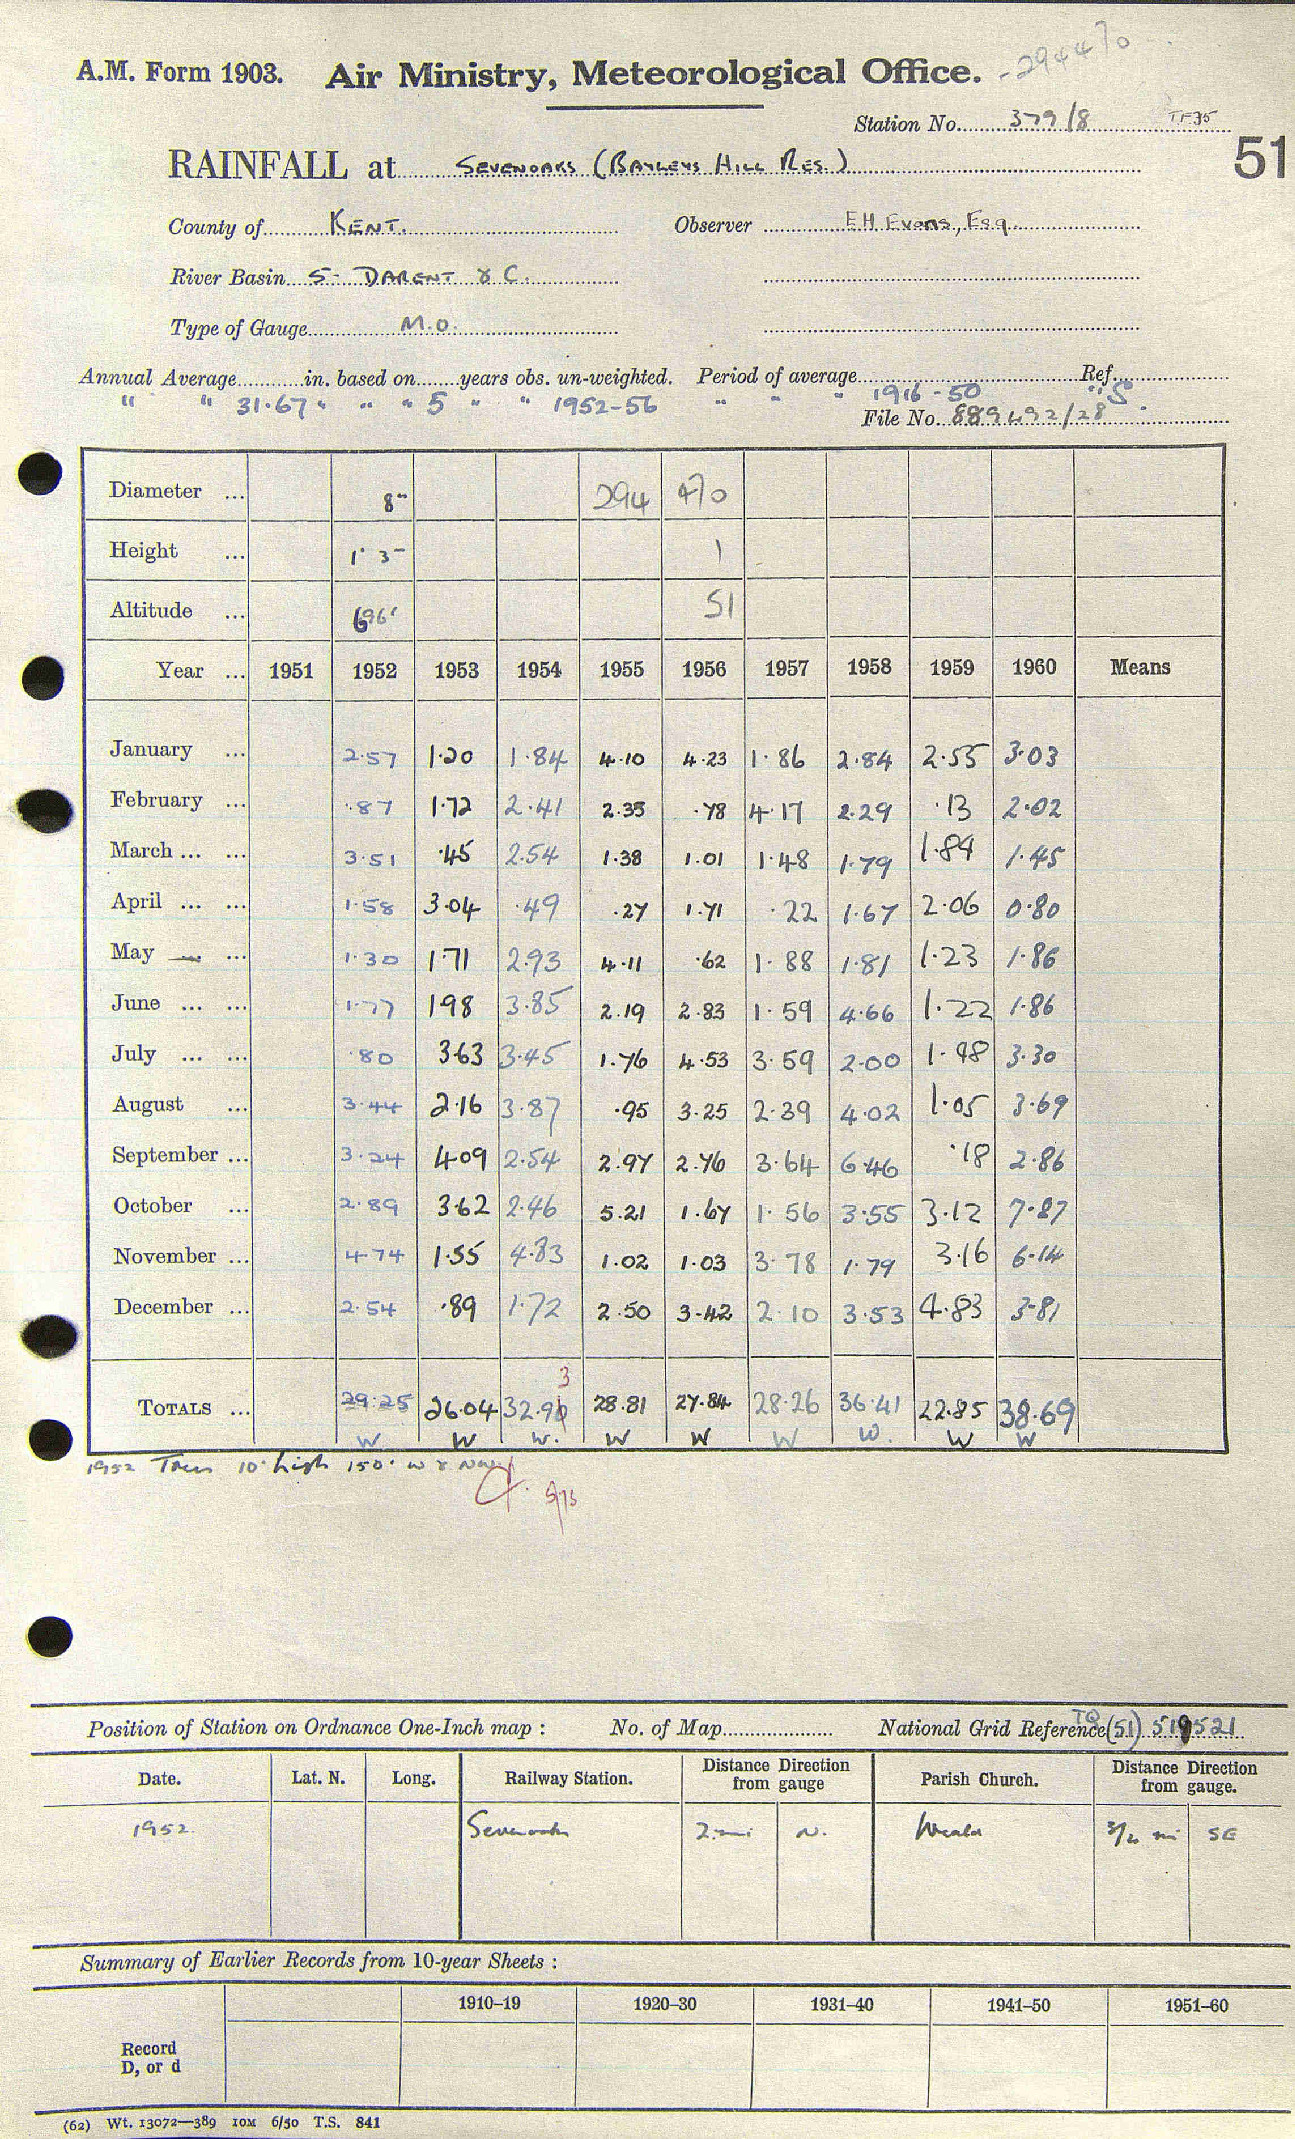 -294470
A.M. Form 1903. Air Ministry, Meteorological Office.
Station No. 379/8 TF35
51
RAINFALL at SEVENOAKS (BAYLEYS HILL RES.)
County of KENT. Observer E.H. Evans, Esq.
River Basin 5- DARENT & C.
Type of Gauge M.O.
Annual Average in. based on years obs. un-weighted. Period of average Ref.
" " 31.67 " " " 5 " " 1952-56 " " " 1916-50 " 5
File No. 889492/28
Diameter ... 8" 294 470
Height ... 1' 3" 1
Altitude ... 696' 51
Year ... 1951 1952 1953 1954 1955 1956 1957 1958 1959 1960 Means
January ... 2.57 1.20 1.84 4.10 4.23 1.86 2.84 2.55 3.03
February ... .87 1.72 2.41 2.35 .78 4.17 2.29 .13 2.02
March ... ... 3.51 .45 2.54 1.38 1.01 1.48 1.79 1.84 1.45
April ... ... 1.58 3.04 .49 .27 1.71 .22 1.67 2.06 0.80
May ... ... 1.30 1.71 2.93 4.11 .62 1.88 1.81 1.23 1.86
June ... ... 1.77 1.98 3.85 2.19 2.83 1.59 4.66 1.22 1.86
July ... ... .80 3.63 3.45 1.76 4.53 3.59 2.00 1.48 3.30
August ... 3.44 2.16 3.87 .95 3.25 2.39 4.02 1.05 3.69
September ... 3.24 4.09 2.54 2.97 2.76 3.64 6.46 .18 2.86
October ... 2.89 3.62 2.46 5.21 1.67 1.56 3.55 3.12 7.87
November ... 4.74 1.55 4.83 1.02 1.03 3.78 1.79 3.16 6.14
December ... 2.54 .89 1.72 2.50 3.42 2.10 3.53 4.83 3.81
3
TOTALS ... 29.25 26.04 32.90 28.81 27.84 28.26 36.41 22.85 38.69
W W W. W W W W. W W
1952 Trees 10' high 150' W & NW
Position of Station on Ordnance One-Inch map : No. of Map National Grid Reference TQ (51) 519521
Date. Lat. N. Long. Railway Station. Distance Direction from gauge Parish Church. Distance Direction from gauge.
1952 Sevenoaks 2 mi N. Weald 3/4 mi SE
Summary of Earlier Records from 10-year Sheets :
1910–19 1920–30 1931–40 1941–50 1951–60
Record
D, or d
(62) Wt. 13072—389 10M 6/50 T.S. 841